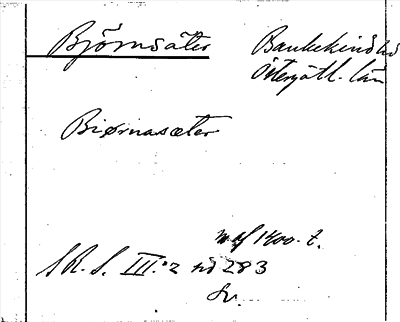 Björnsäter Bankekinds hd
Östergötl. län
Biørnasæter
m af 1400-t.
S.R.S. III:2 sid 283
Sv.